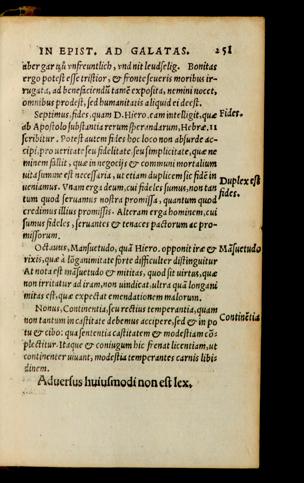 IN EPIST. AD GALATAS. 251
aber gar zů vnfreuntlich, vnd nit leudselig. Bonitas
ergo potest esse tristior, & fronte seueris moribus ir-
rugata, ad beneficiendũ tamẽ exposita, nemini nocet,
omnibus prodest, sed humanitatis aliquid ei deest.
Septimus, fides, quam D. Hiero. eam intelligit, quæ
ab Apostolo substantia rerum sperandarum, Hebræ. 11
scribitur. Potest autem fides hoc loco non absurde ac-
cipi, pro ueritate seu fidelitate, seu simplicitate, quæ ne
minem fallit, quæ in negocijs & communi mortalium
uita summe est necessaria, ut etiam duplicem sic fidẽ in
ueniamus. Vnam erga deum, cui fideles sumus, non tan
tum quod seruamus nostra promissa, quantum quod
credimus illius promissis. Alteram erga hominem, cui
sumus fideles, seruantes & tenaces pactorum ac pro-
missorum.
Octauus, Mansuetudo, quã Hiero. opponit iræ &
rixis, quæ à lõganimitate forte difficulter distinguitur
At nota est mãsuetudo & mititas, quod sit uirtus, quæ
non irritatur ad iram, non uindicat. ultra quã longani
mitas est, quæ expectat emendationem malorum.
Nonus, Continentia, seu rectius temperantia, quam
non tantum in castitate debemus accipere, sed & in po
tu & cibo: qua sententia castitatem & modestiam cõ-
plectitur. Itaque & coniugum hic frenat licentiam, ut
continenter uiuant, modestia temperantes carnis libi
dinem.
Aduersus huiusmodi non est lex.
Fides.
Duplex est
fides.
Mãsuetudo
Continẽtia